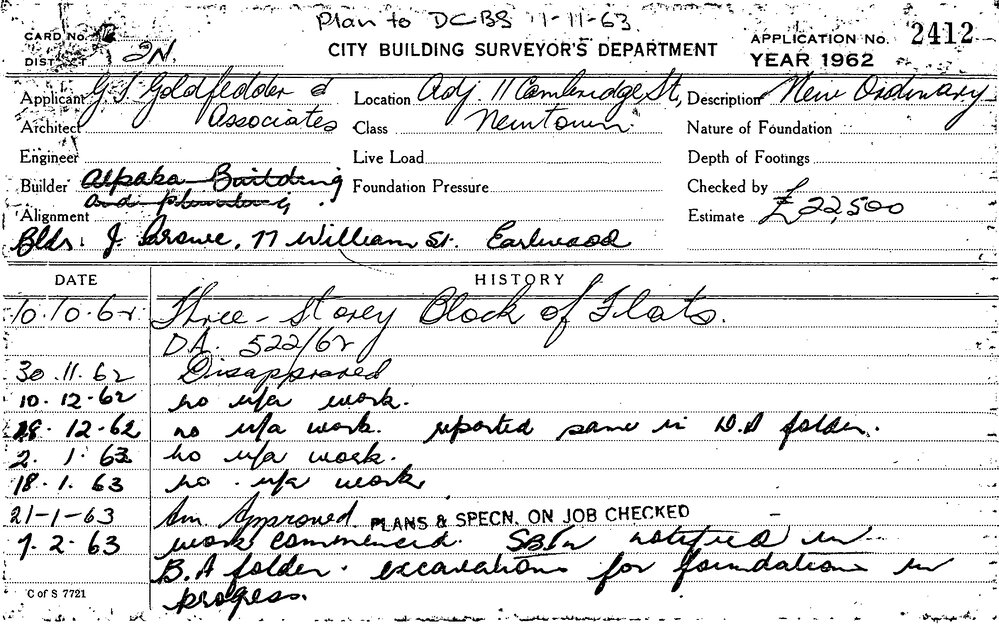 Plan to DCBS 11-11-63
CARD No.
DISTRICT 2N.
CITY BUILDING SURVEYOR'S DEPARTMENT
APPLICATION No. 2412
YEAR 1962
Applicant G J Goldfedder & Location Adj 11 Cambridge St, Description New Ordinary
Architect Associates Class Newtown Nature of Foundation
Engineer Live Load Depth of Footings
Builder Alpaka Building Foundation Pressure Checked by
and plumbing.
Alignment Estimate £22,500
Bldr: J. Browne, 77 William St. Earlwood
DATE HISTORY
10.10.62 Three-Storey Block of Flats.
DA. 522/62
30.11.62 Disapproved
10.12.62 no u/a work.
12.62 no u/a work. reported same in D.A folder.
2. 1. 63 no u/a work.
18.1.63 no u/a work.
21-1-63 Am. Approved. PLANS & SPECN. ON JOB CHECKED
7.2.63 work commenced. notified in
B.A folder. excavations for foundations in
progress.
C of S 7721